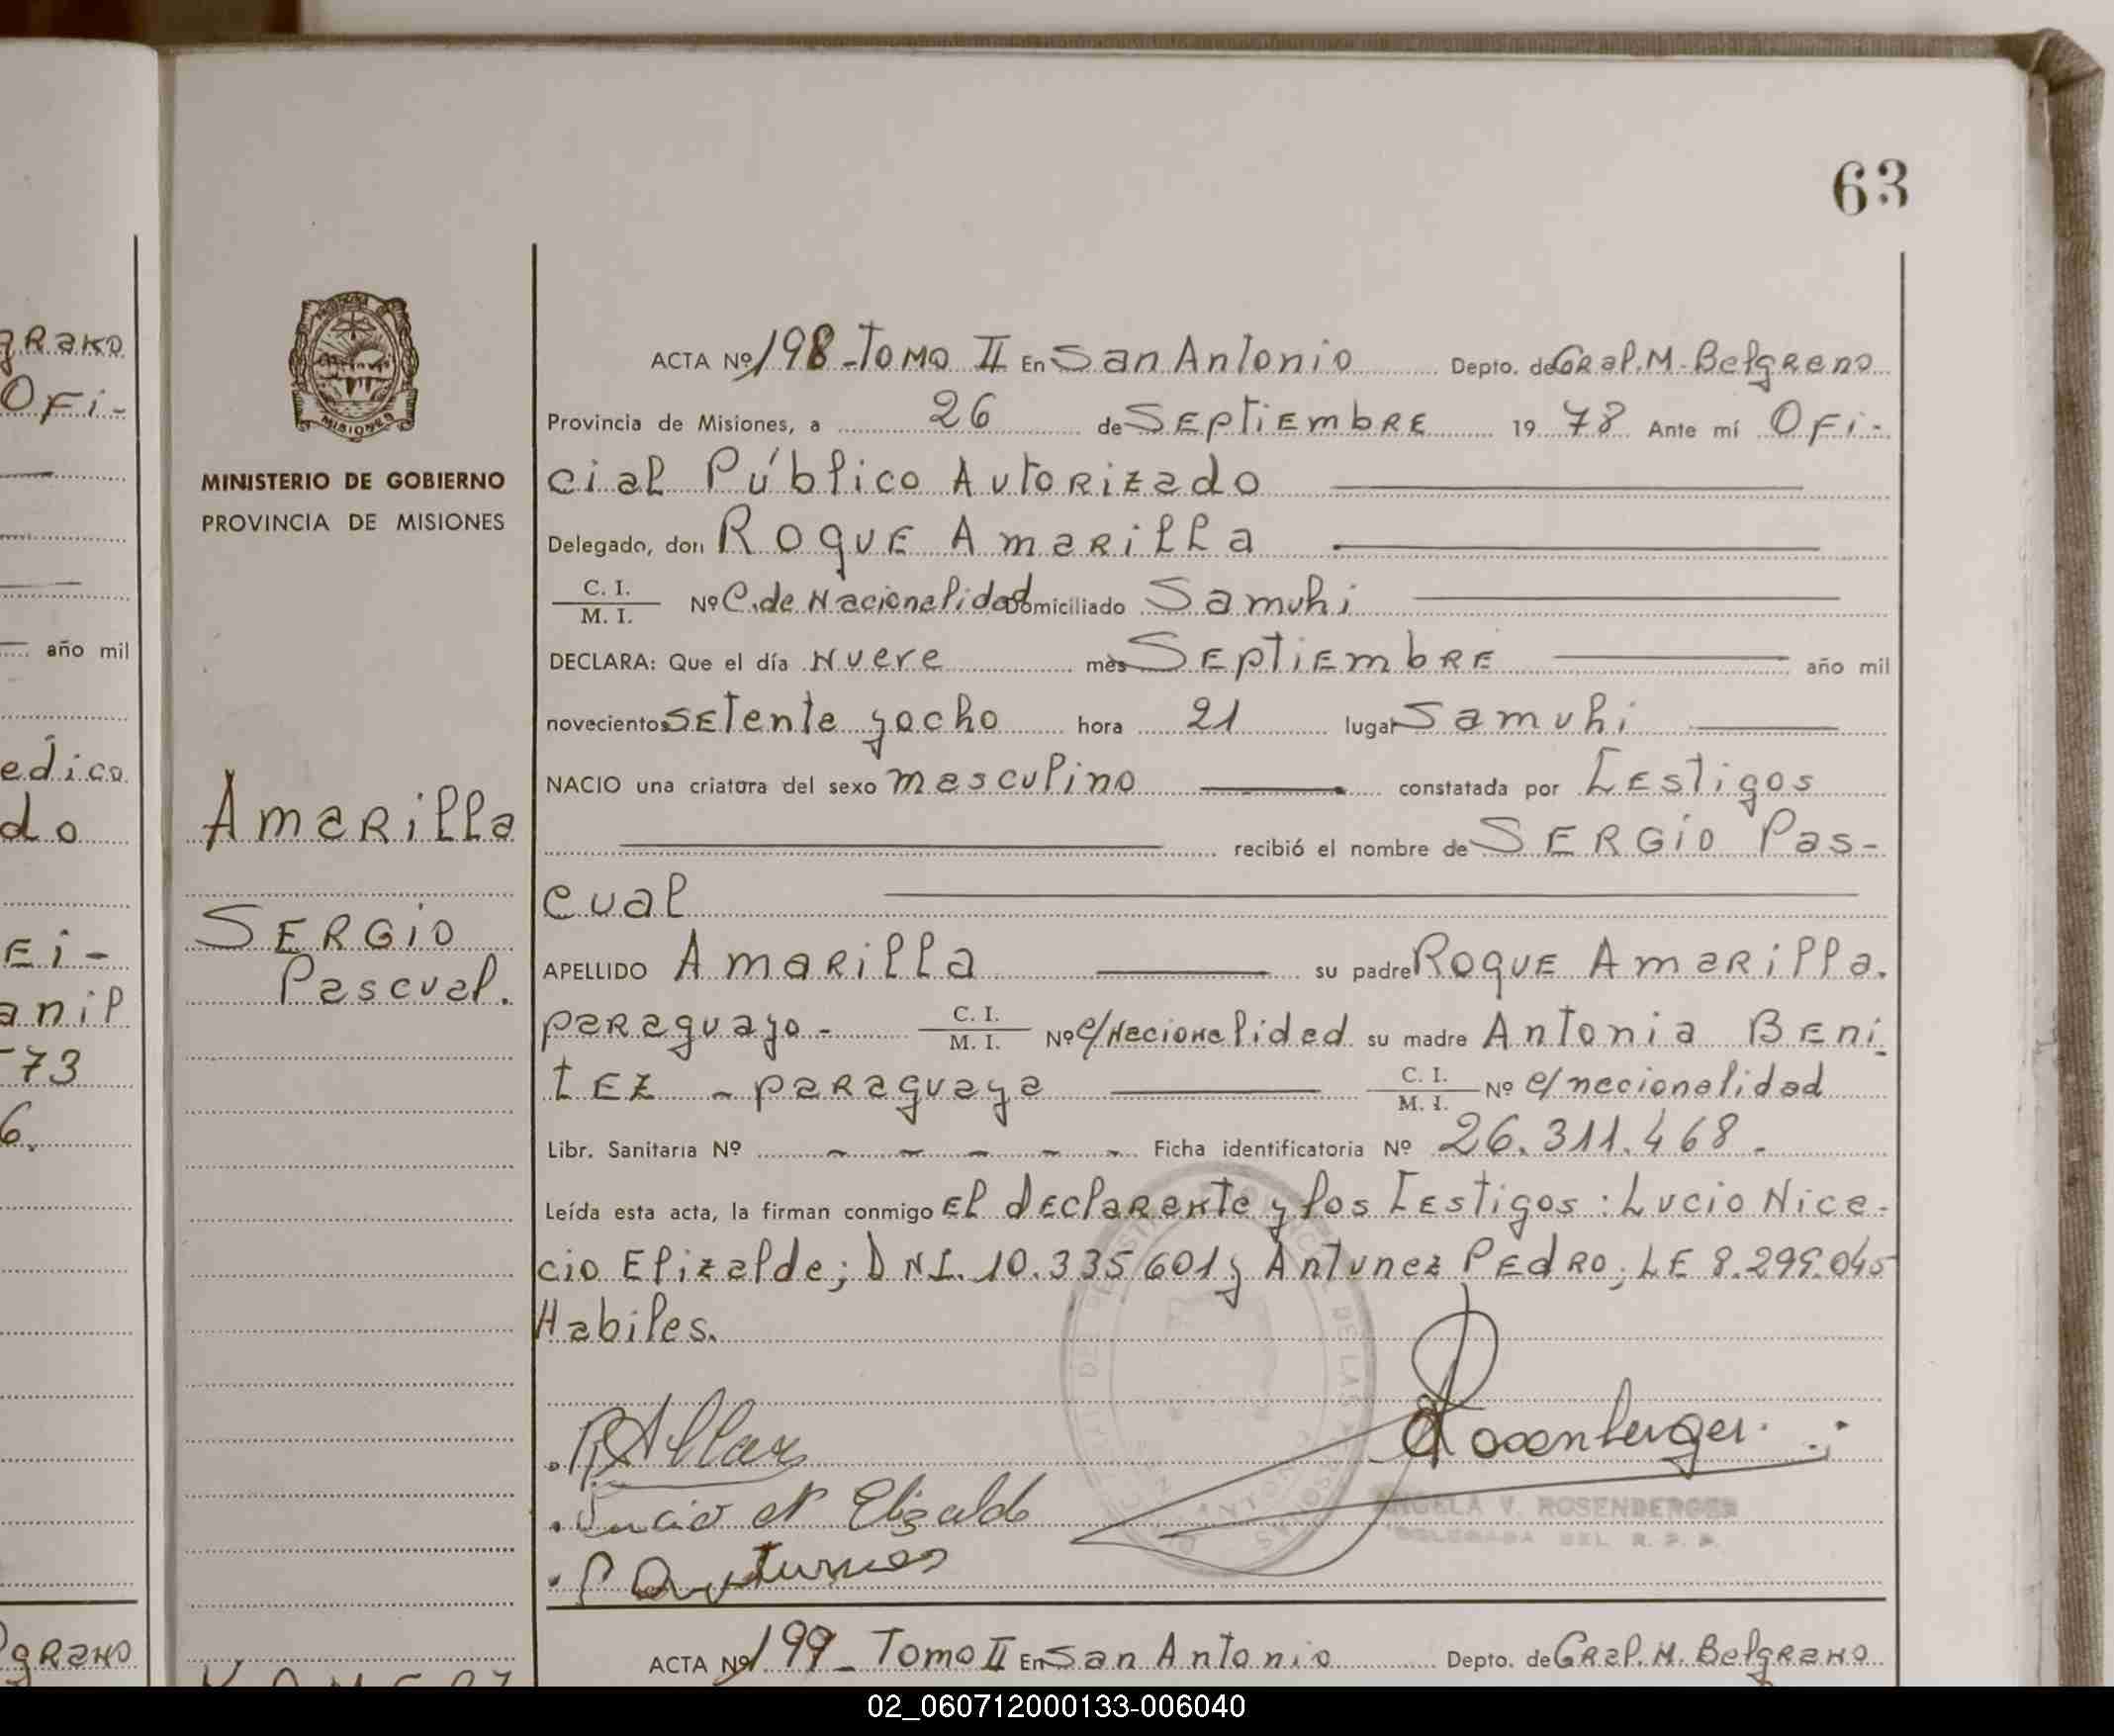 63
grano
Ofi-
año mil
edico
do
Ei-
anil
-73
6.
grano
MISIONES
MINISTERIO DE GOBIERNO
PROVINCIA DE MISIONES
Amarilla
SERGiO
Pascual.
ACTA Nº 198-Tomo II En San Antonio Depto. de Gral. M. Belgrano
Provincia de Misiones, a 26 de SEptiEmbRE 1978 Ante mí Ofi-
cial Público Autorizado
Delegado, don ROqUE AmaRilla
C. I. / M. I. Nº C. de Nacionalidad Domiciliado Samuhi
DECLARA: Que el día Nueve mes SEptiEmbRE año mil
novecientos SEtenta yocho hora 21 lugar Samuhi
NACIO una criatura del sexo masculino constatada por tEstigos
recibió el nombre de SERGiO Pas-
cual
APELLIDO AmaRilla su padre RoqUE AmaRilla.
paRaguayo- C. I. / M. I. Nº c/Nacionalidad su madre Antonia BEni
tEz - paRaguaya C. I. / M. I. Nº c/nacionalidad
Libr. Sanitaria Nº - - - - - Ficha identificatoria Nº 26.311.468.
Leída esta acta, la firman conmigo El dEclaRante y los tEstigos: Lucio Nica-
cio Elizalde; DNI. 10.335.601 y Antunez PEdRO; LE 8.299.045
Habiles.
Rosenberger
Lucio N Elizalde
ANGELA V. ROSENBERGER
DELEGADA DEL R. P. P.
P Antunes
ACTA Nº 199- Tomo II En San Antonio Depto. de GRal. M. BelgRaNo
02_060712000133-006040